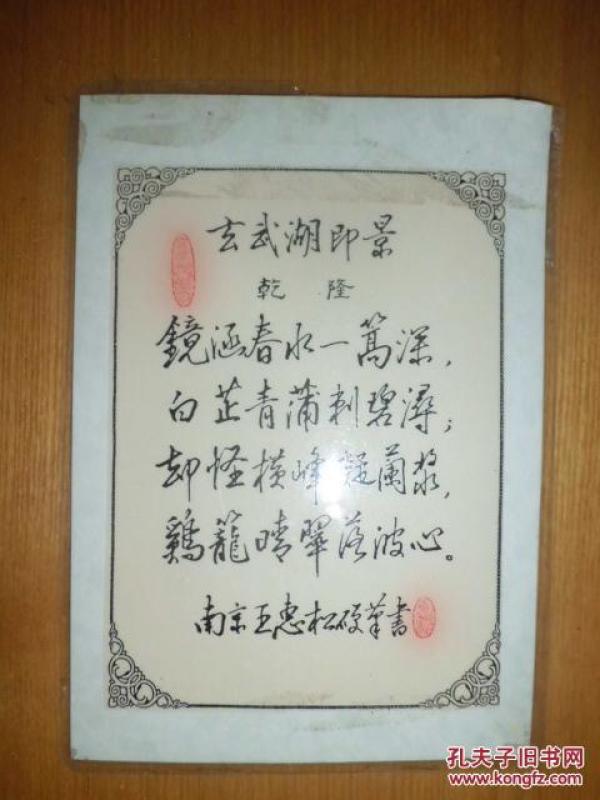 玄武湖即景
乾 隆
鏡涵春水一篙深，
白芷青蒲刺碧潯；
却怪橫峰礙蘭槳，
鷄籠晴翠落波心。
南京王惠松硬筆書
孔夫子旧书网
www.kongfz.com